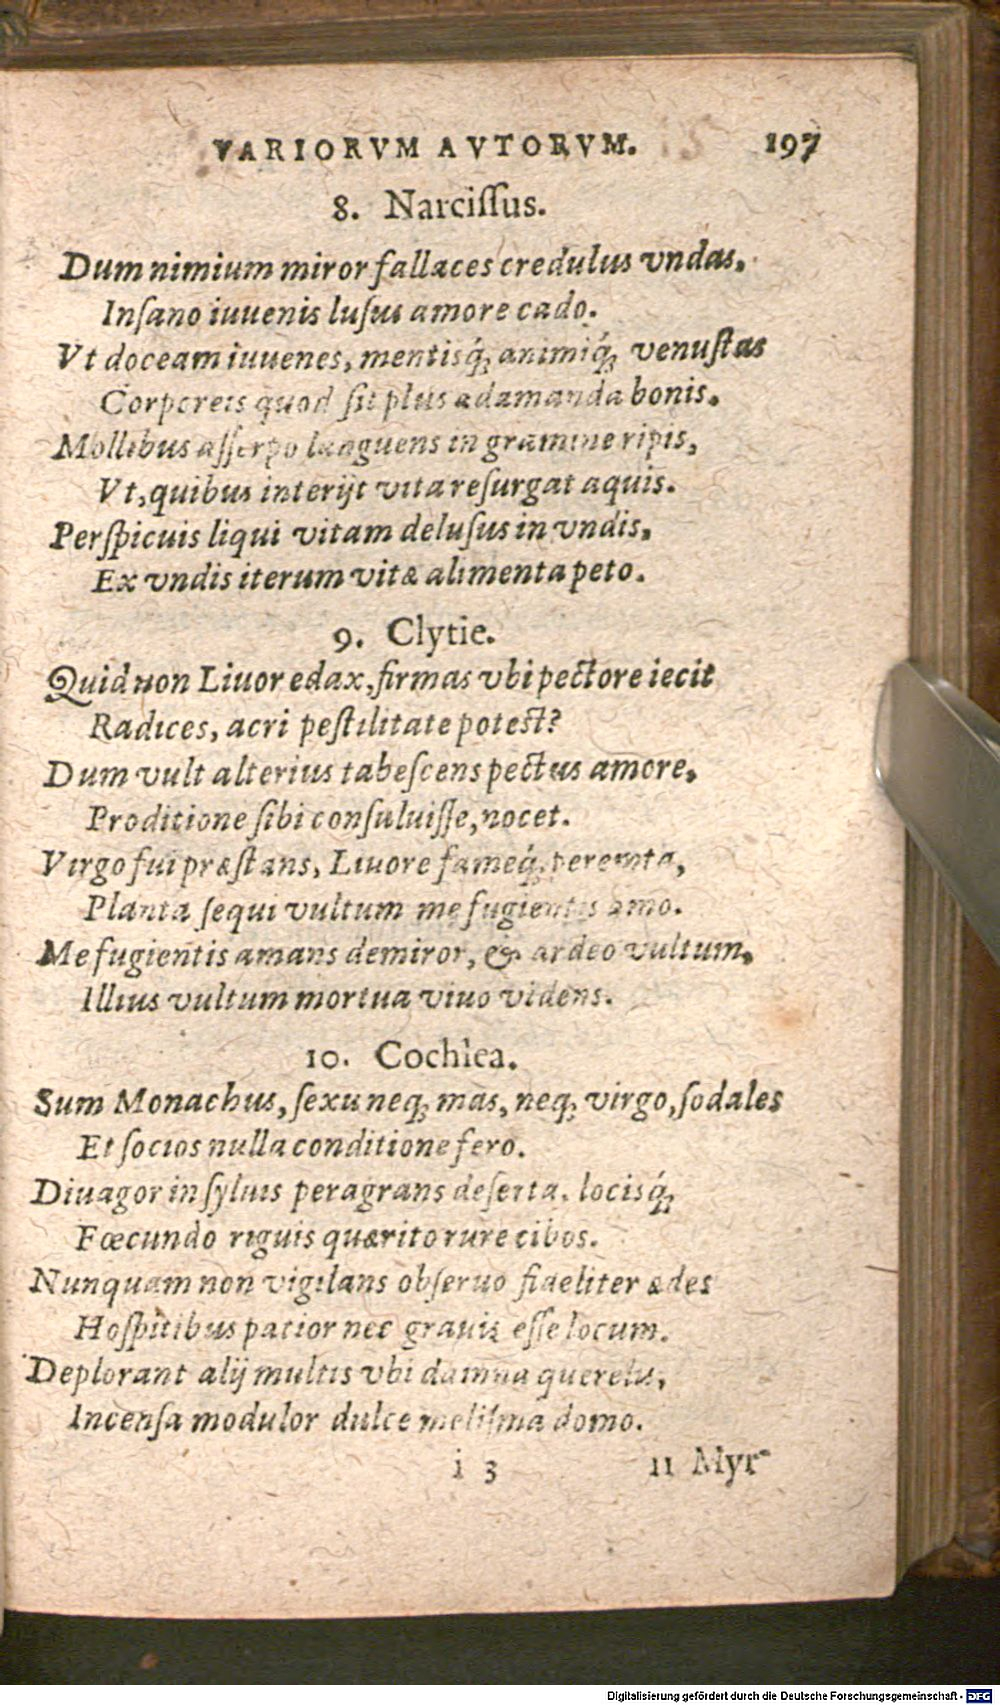 VARIORVM AVTORVM. 197
8. Narciſſus.
Dum nimium miror fallaces credulus vndas,
Inſano iuuenis luſus amore cado.
Vt doceam iuuenes, mentisq́; animiq́; venuſtas
Corporeis quod ſit plus adamanda bonis.
Mollibus aſſerpo languens in gramine ripis,
Vt, quibus interijt vita reſurgat aquis.
Perſpicuis liqui vitam deluſus in vndis,
Ex vndis iterum vitæ alimenta peto.
9. Clytie.
Quid non Liuor edax, firmas vbi pectore iecit
Radices, acri peſtilitate poteſt?
Dum vult alterius tabeſcens pectus amore,
Proditione ſibi conſuluiſſe, nocet.
Virgo fui præſtans, Liuore fameq́; peremta,
Planta ſequi vultum me fugientis amo.
Me fugientis amans demiror, & ardeo vultum,
Illius vultum mortua viuo videns.
10. Cochlea.
Sum Monachus, ſexu neq; mas, neq; virgo, ſodales
Et ſocios nulla conditione fero.
Diuagor in ſyluis peragrans deſerta, locisq́;
Fœcundo riguis quærito rure cibos.
Nunquam non vigilans obſeruo fideliter ædes
Hoſpitibus patior nec grauis eſſe locum.
Deplorant alij multis vbi damna querelis,
Incenſa modulor dulce meliſma domo.
i 3 11 Myr-
Digitalisierung gefördert durch die Deutsche Forschungsgemeinschaft - DFG